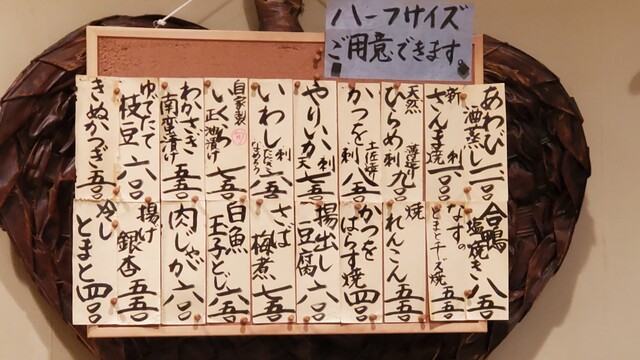 ハーフサイズ
ご用意できます。
あわび酒蒸し 一二〇
新さんま 刺 焼 一〇〇
天然ひらめ 薄造り 刺 九〇
かつを 土佐焼 刺 八五
やりいか 刺 天 七五
いわし 刺 たたき なめろう 六五
自家製
政池漬け 七五
わかさぎ南蛮漬け 五五
ゆでたて枝豆 六〇
きぬかつぎ 五〇
合鴨塩焼き 八五
なす とまと チーズ焼 五五
焼れんこん 五五
かつをはらす焼 四〇
揚出し豆腐 六〇
さば梅煮 七五
白魚玉子とじ 六五
肉じゃが 六〇
揚げ銀杏 五五
冷しとまと 四〇